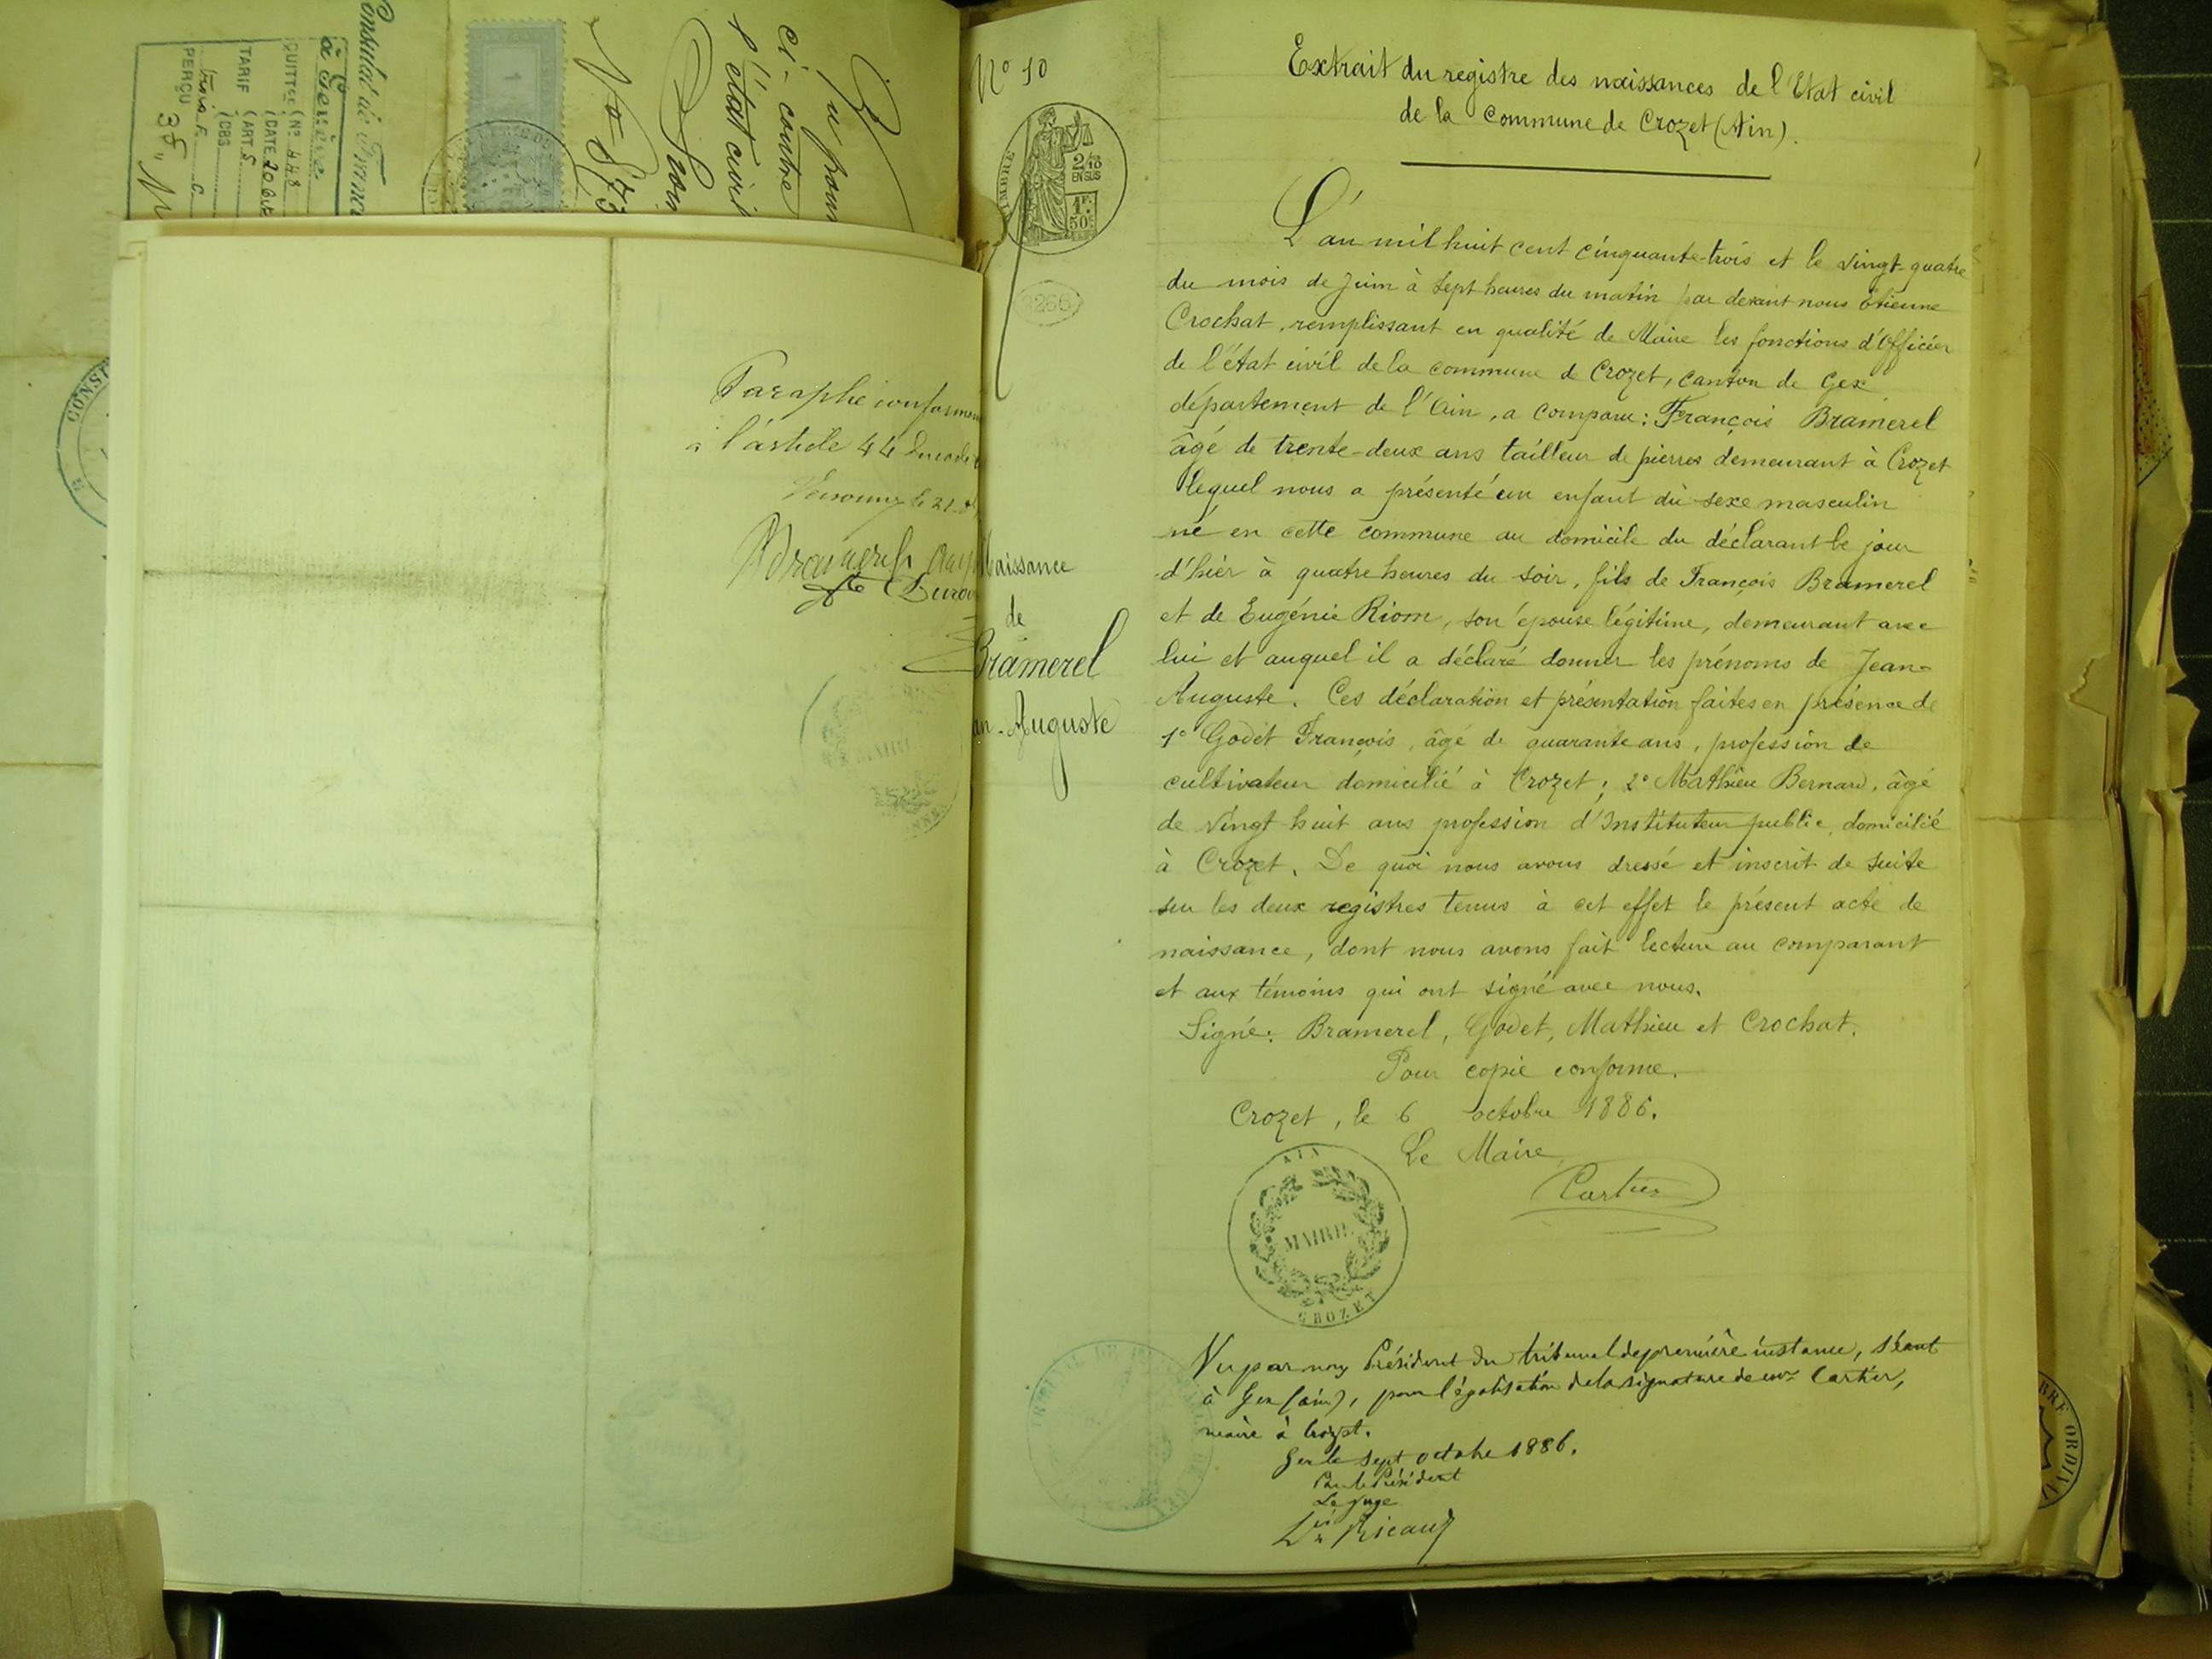 Consulat de France
à Genève
QUITTCE (No 448
(DATE 20 Oct
TARIF (ART. 6
(OBS
trois F. C.
PERÇU
Vu pour
ci-contre
l'état civil
CONSU
Paraphé conformém
à l'article 44 du code
le 21
MAIRIE
No 10
TIMBRE
2/10
EN SUS
1F.
50c
Naissance
de
Bramerel
an-Auguste
Extrait du registre des naissances de l'Etat civil
de la Commune de Crozet (Ain).
L'an mil huit cent cinquante-trois et le vingt-quatre
du mois de Juin à sept heures du matin par devant nous Etienne
Crochat, remplissant en qualité de Maire les fonctions d'Officier
de l'état civil de la commune de Crozet, canton de Gex
département de l'Ain, a comparu: François Bramerel
âgé de trente-deux ans tailleur de pierres demeurant à Crozet
lequel nous a présenté un enfant du sexe masculin
né en cette commune au domicile du déclarant le jour
d'hier à quatre heures du soir, fils de François Bramerel
et de Eugénie Riom, son épouse légitime, demeurant avec
lui et auquel il a déclaré donner les prénoms de Jean-
Auguste. Ces déclaration et présentation faites en présence de
1° Godet François, âgé de quarante ans, profession de
cultivateur domicilié à Crozet; 2° Mathieu Bernard, âgé
de vingt huit ans profession d'Instituteur public, domicilié
à Crozet. De quoi nous avons dressé et inscrit de suite
sur les deux registres tenus à cet effet le présent acte de
naissance, dont nous avons fait lecture au comparant
et aux témoins qui ont signé avec nous.
Signé: Bramerel, Godet, Mathieu et Crochat.
Pour copie conforme.
Crozet, le 6 octobre 1886.
Le Maire,
Cartier
AIN
MAIRIE
CROZET
Vu par nous Président du tribunal de première instance, séant
à Gex (ain), pour légalisation de la signature de Mr Cartier,
maire à Crozet.
Gex le sept octobre 1886.
Pour le Président
Le Juge
Ricaud